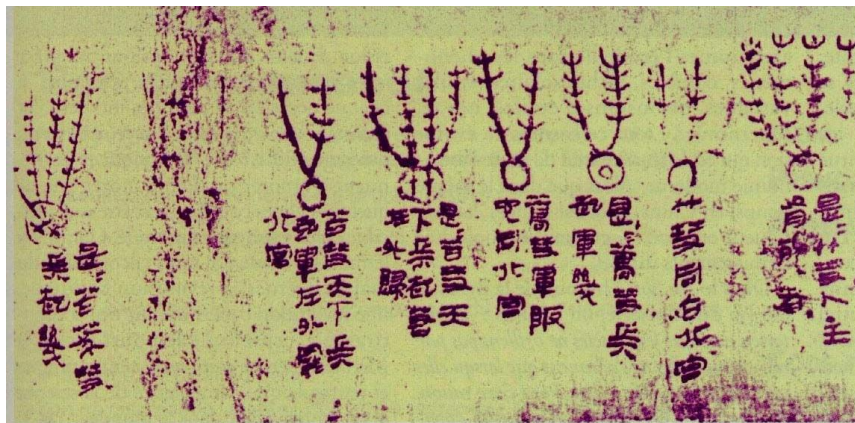 是=竹彗人主
有死者
竹彗同占北宮
是=蒿彗兵
起軍幾
蒿彗軍阪
它同北宮
是=苫彗天
下兵起若
在外歸
苫彗天下兵
起軍在外罷
北宮
是=苫茇彗
兵起幾